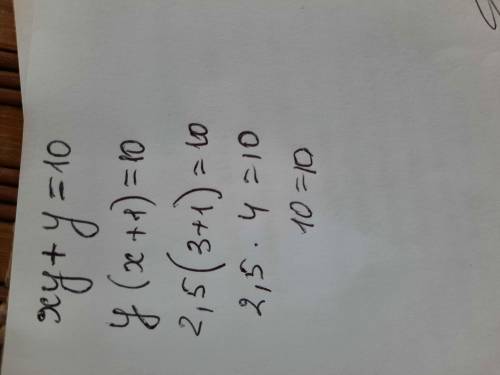 xy + y = 10
y (x + 1) = 10
2,5 (3 + 1) = 10
2,5 · 4 = 10
10 = 10